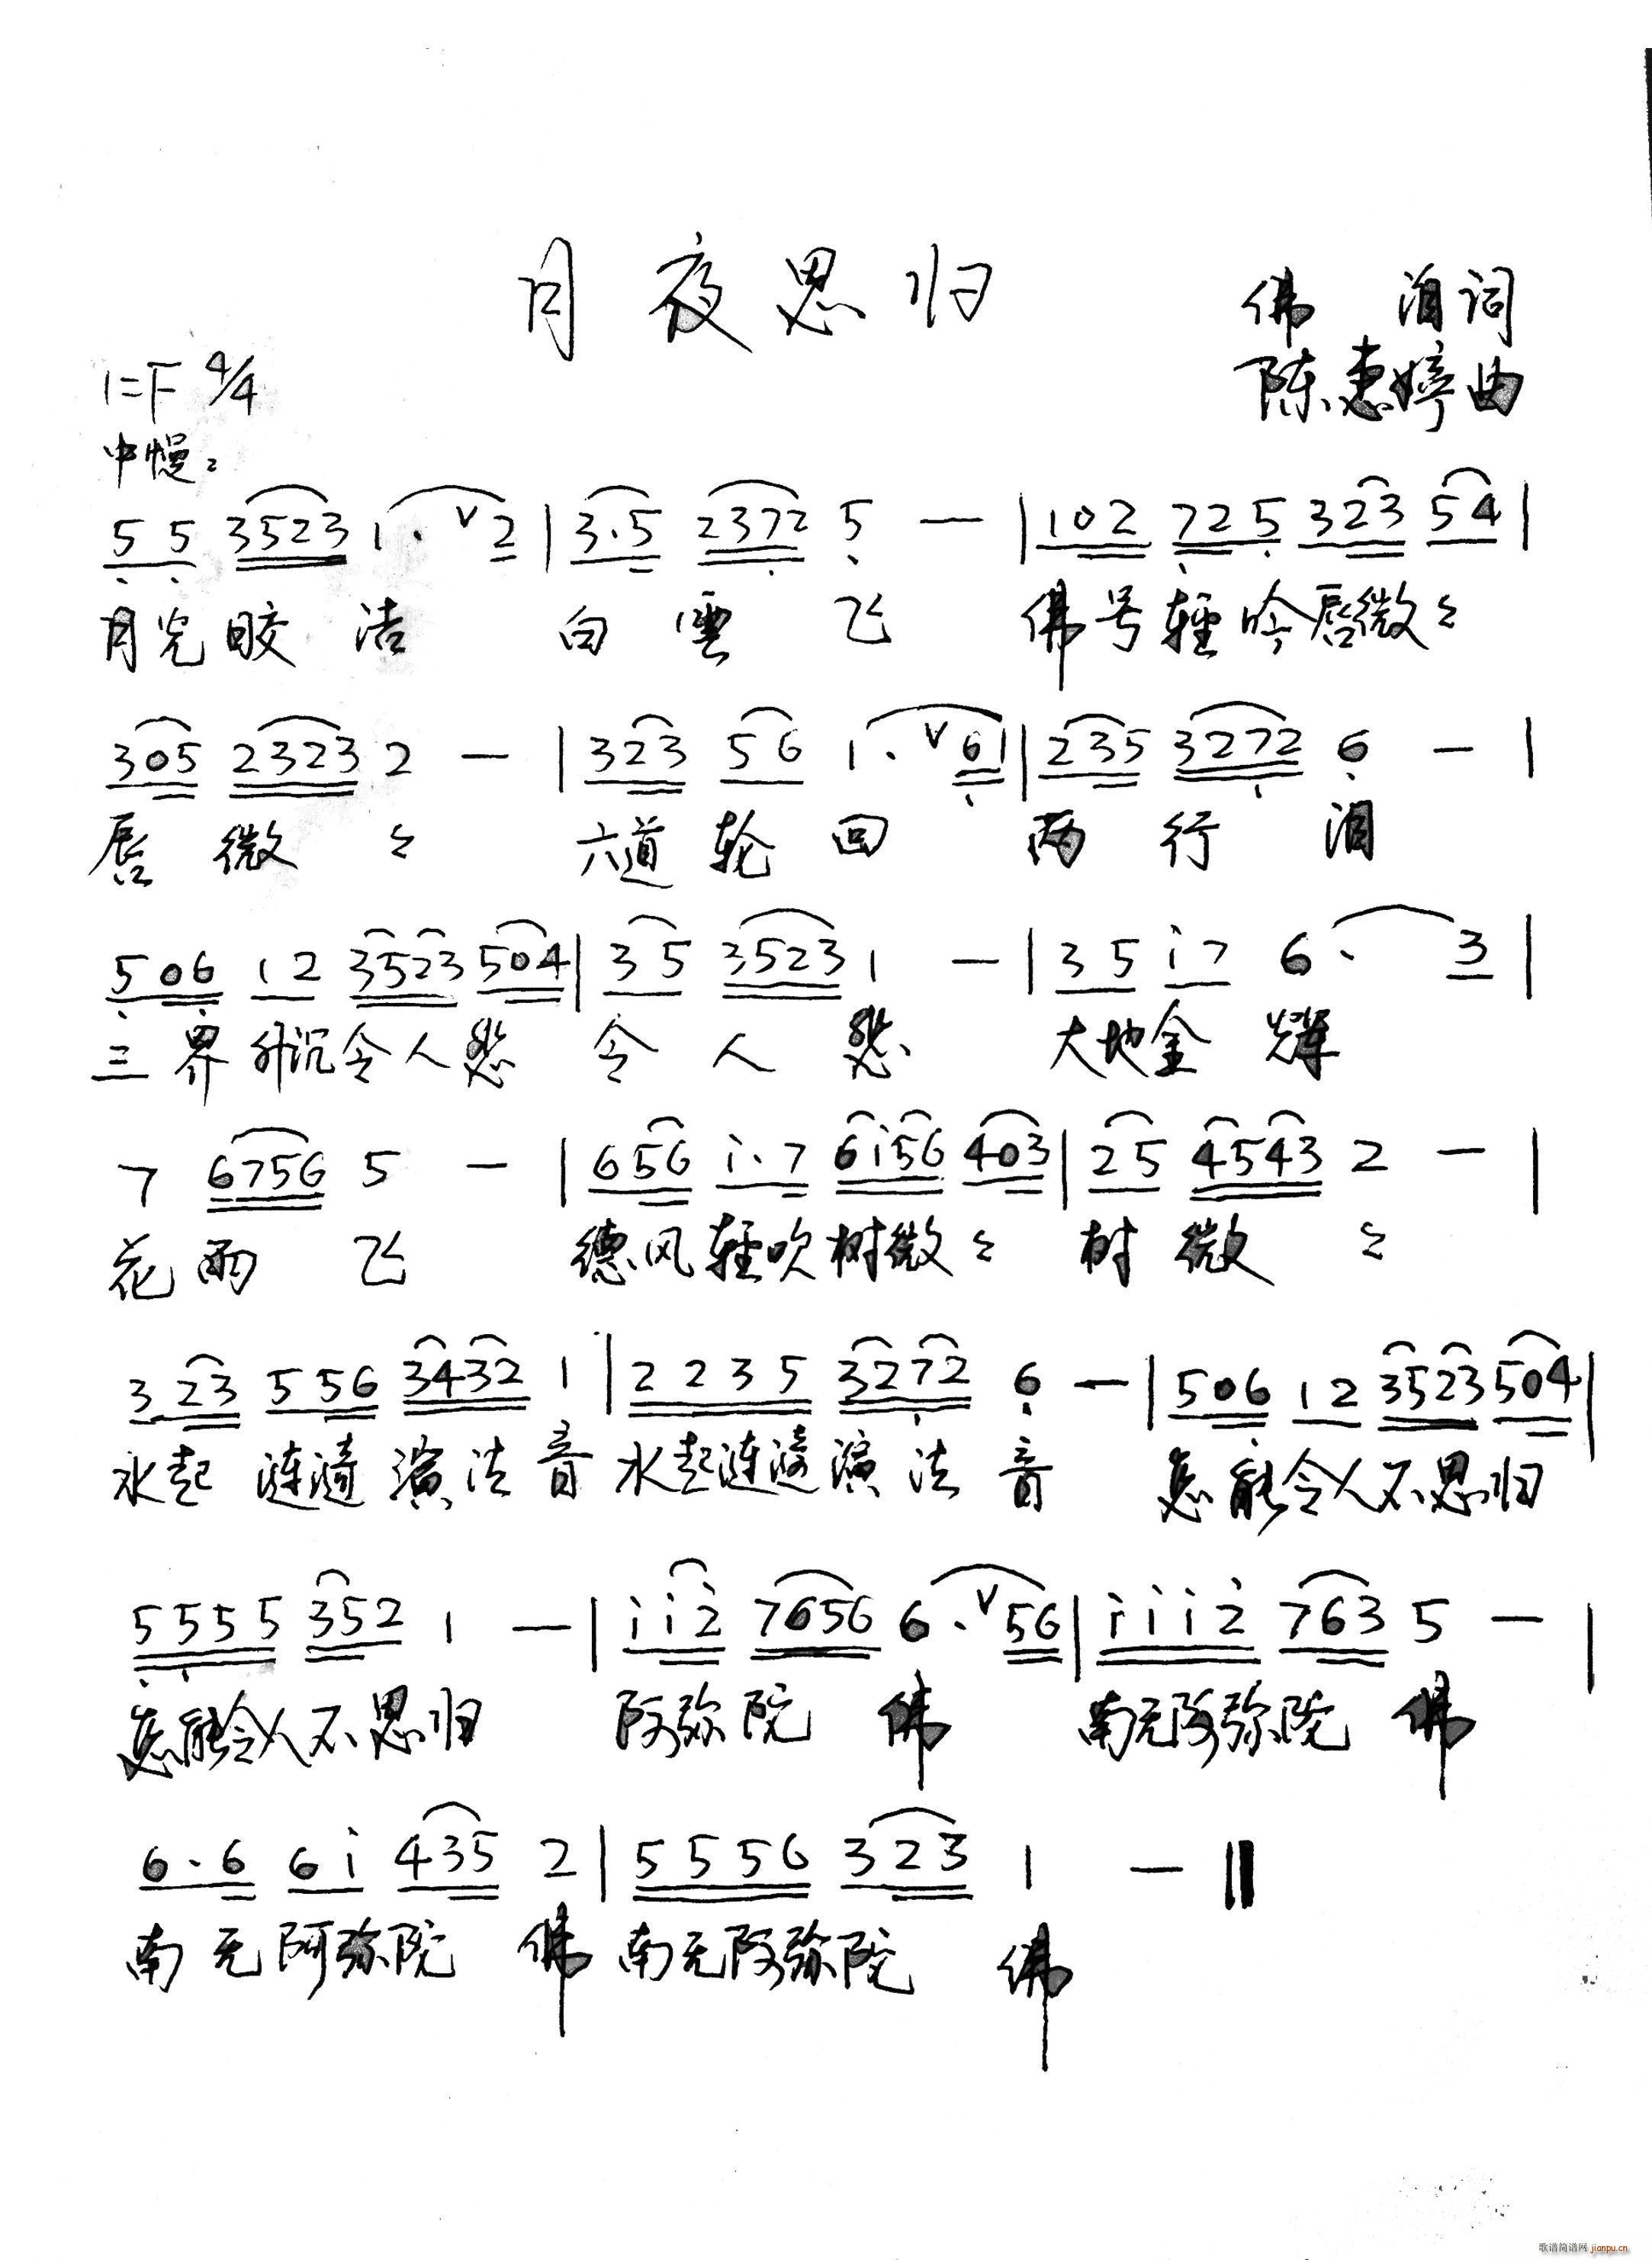 月夜思归
佛泪词
1=F 4/4
陈惠婷曲
中慢:
5 5 3523 1· ∨ 2 | 3·5 2372 5 — | 102 725 323 54 |
月光皎洁 白雲飞 佛号轻吟唇微々
305 2323 2 — | 323 56 1· ∨ 61 | 235 3272 6 — |
唇微々 六道轮回 两行泪
506 12 3523 504 | 35 3523 1 — | 35 i7 6· 3 |
三界升沉令人愁 令人愁 大地金辉
7 6756 5 — | 656 i·7 6i56 403 | 25 4543 2 — |
花雨飞 德风轻吹树微々 树微々
323 556 3432 1 | 2235 3272 6 — | 506 12 3523 504 |
水起涟漪演法音 水起涟漪演法音 怎能令人不思归
5555 352 1 — | i i2 7656 6· ∨ 56 | i i i 2 763 5 — |
怎能令人不思归 阿弥陀佛 南无阿弥陀佛
6·6 6i 435 2 | 5556 323 1 — ‖
南无阿弥陀佛 南无阿弥陀佛
歌谱简谱网 jianpu.cn